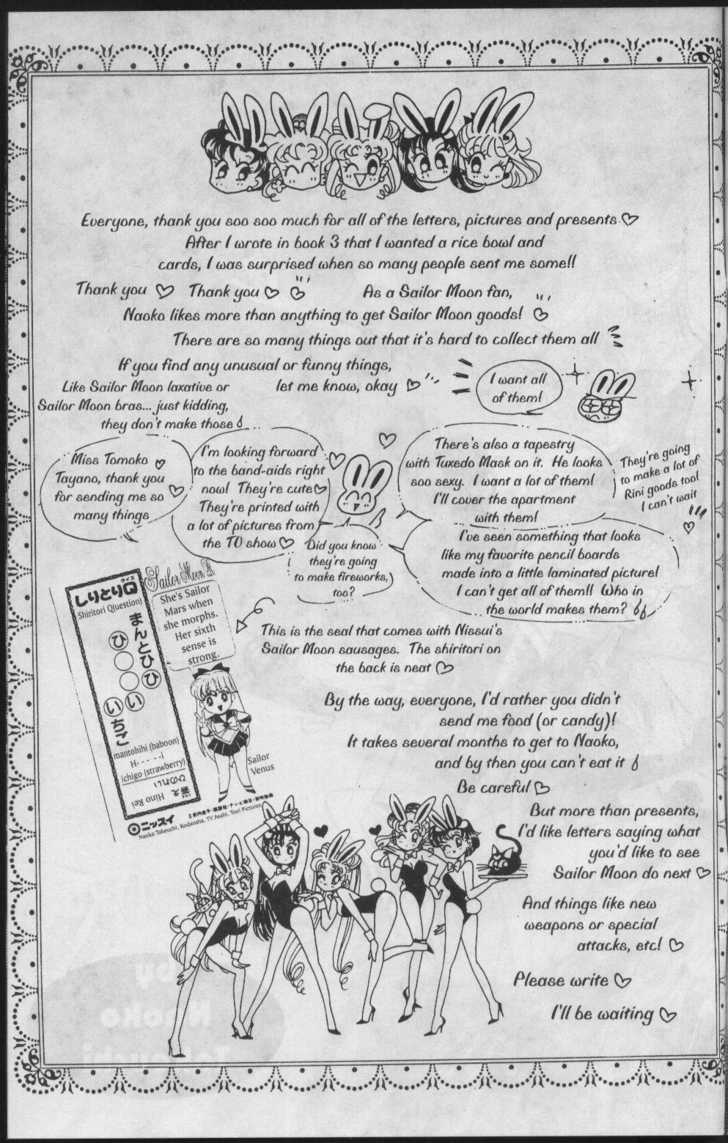 Everyone, thank you soo soo much for all of the letters, pictures and presents ♡
After I wrote in book 3 that I wanted a rice bowl and
cards, I was surprised when so many people sent me some!!
Thank you ♡ Thank you ♡ ♡ As a Sailor Moon fan,
Naoko likes more than anything to get Sailor Moon goods! ♡
There are so many things out that it's hard to collect them all
If you find any unusual or funny things,
let me know, okay ♡
Like Sailor Moon laxative or
Sailor Moon bras... just kidding,
they don't make those
I want all
of them!
Miss Tomoko ♡
Tayano, thank you
for sending me so ♡
many things
I'm looking forward
to the band-aids right
now! They're cute ♡
They're printed with
a lot of pictures from
the TV show ♡
Did you know
they're going
to make fireworks,
too?
There's also a tapestry
with Tuxedo Mask on it. He looks
soo sexy. I want a lot of them!
I'll cover the apartment
with them!
They're going
to make a lot of
Rini goods too!
I can't wait
I've seen something that looks
like my favorite pencil boards
made into a little laminated picture!
I can't get all of them!! Who in
the world makes them?
しりとりQ
クイズ
Shiritori Q(uestion)
まんとひひ
ひ○○○い
いちご
mantohihi (baboon)
H- - - -i
ichigo (strawberry)
ひのれい
答え Hino Rei
ニッスイ
Naoko Takeuchi, Kodansha, TV Asahi, Toei Pictures
Sailor Moon R
She's Sailor
Mars when
she morphs.
Her sixth
sense is
strong.
Sailor
Venus
This is the seal that comes with Nissui's
Sailor Moon sausages. The shiritori on
the back is neat ♡
By the way, everyone, I'd rather you didn't
send me food (or candy)!
It takes several months to get to Naoko,
and by then you can't eat it
Be careful ♡
But more than presents,
I'd like letters saying what
you'd like to see
Sailor Moon do next ♡
And things like new
weapons or special
attacks, etc! ♡
Please write ♡
I'll be waiting ♡